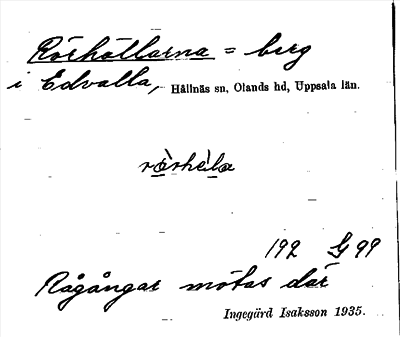 Rörhällarna = berg
i Edvalla, Hållnäs sn, Olands hd, Uppsala län.
192 G 99
Rågångar mötas där
Ingegärd Isaksson 1935.